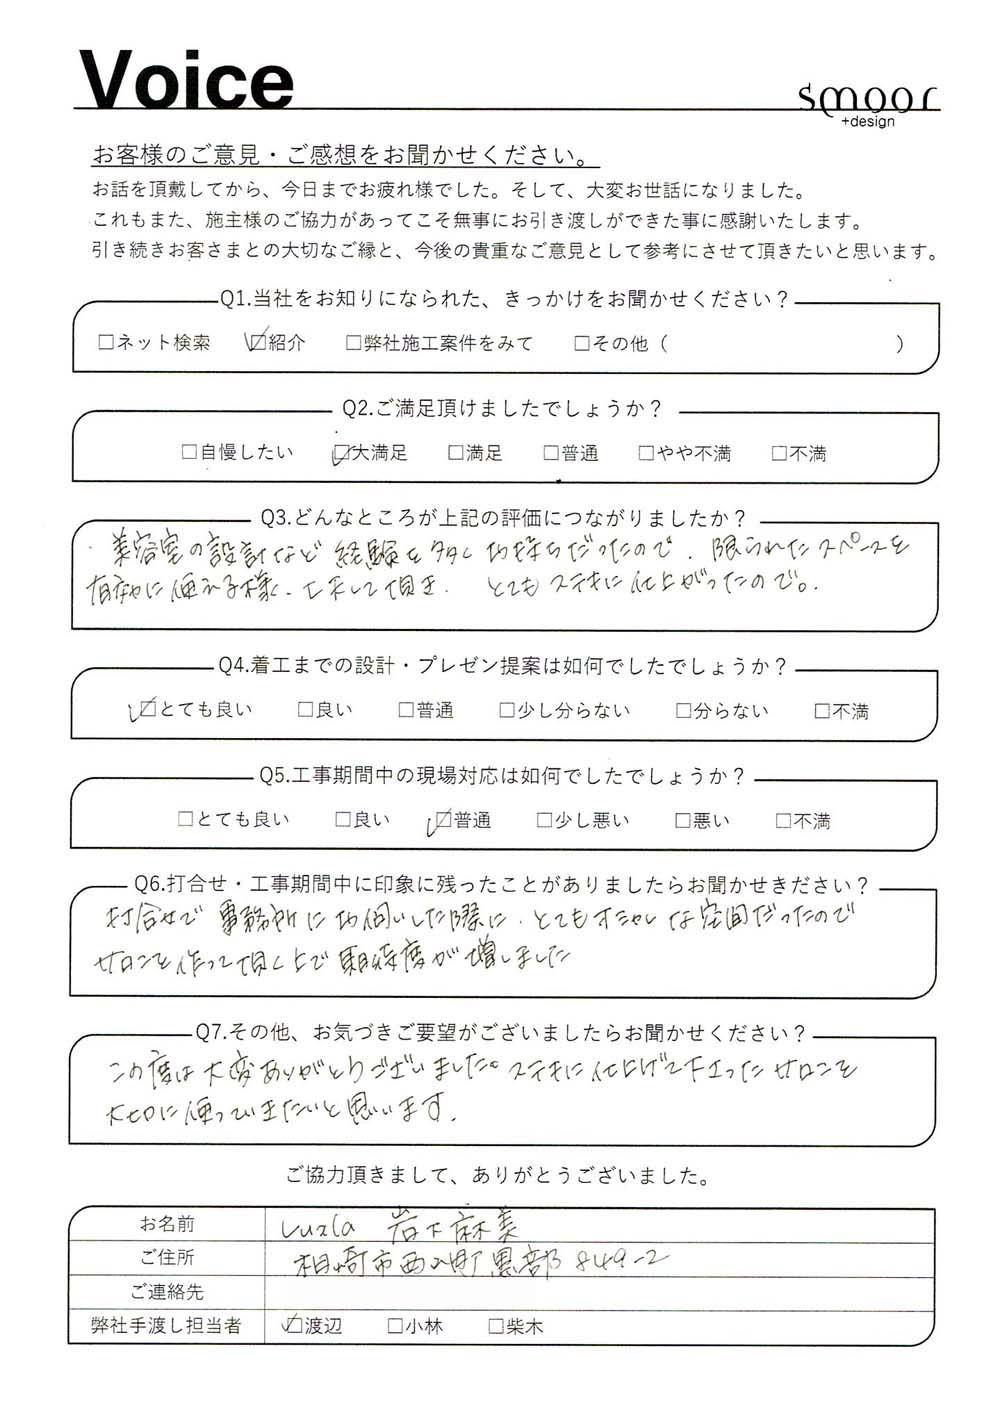 Voice
smoor
+design
お客様のご意見・ご感想をお聞かせください。
お話を頂戴してから、今日までお疲れ様でした。そして、大変お世話になりました。
これもまた、施主様のご協力があってこそ無事にお引き渡しができた事に感謝いたします。
引き続きお客さまとの大切なご縁と、今後の貴重なご意見として参考にさせて頂きたいと思います。
Q1.当社をお知りになられた、きっかけをお聞かせください？
□ネット検索 ☑紹介 □弊社施工案件をみて □その他（ ）
Q2.ご満足頂けましたでしょうか？
□自慢したい ☑大満足 □満足 □普通 □やや不満 □不満
Q3.どんなところが上記の評価につながりましたか？
美容室の設計など 経験を多くお持ちだったので、限られたスペースを
有効に使える様、工夫して頂き、とてもステキに仕上がったので。
Q4.着工までの設計・プレゼン提案は如何でしたでしょうか？
☑とても良い □良い □普通 □少し分らない □分らない □不満
Q5.工事期間中の現場対応は如何でしたでしょうか？
□とても良い □良い ☑普通 □少し悪い □悪い □不満
Q6.打合せ・工事期間中に印象に残ったことがありましたらお聞かせきださい？
打合せで 事務所にお伺いした際に、とてもオシャレな空間だったので
サロンを作って頂く上で期待度が増しました
Q7.その他、お気づきご要望がございましたらお聞かせください？
この度は大変ありがとうございました。ステキに仕上げて下さったサロンを
大切に使っていきたいと思います.
ご協力頂きまして、ありがとうございました。
お名前 岩下麻美
ご住所 柏崎市西山町黒部849-2
ご連絡先
弊社手渡し担当者 ☑渡辺 □小林 □柴木